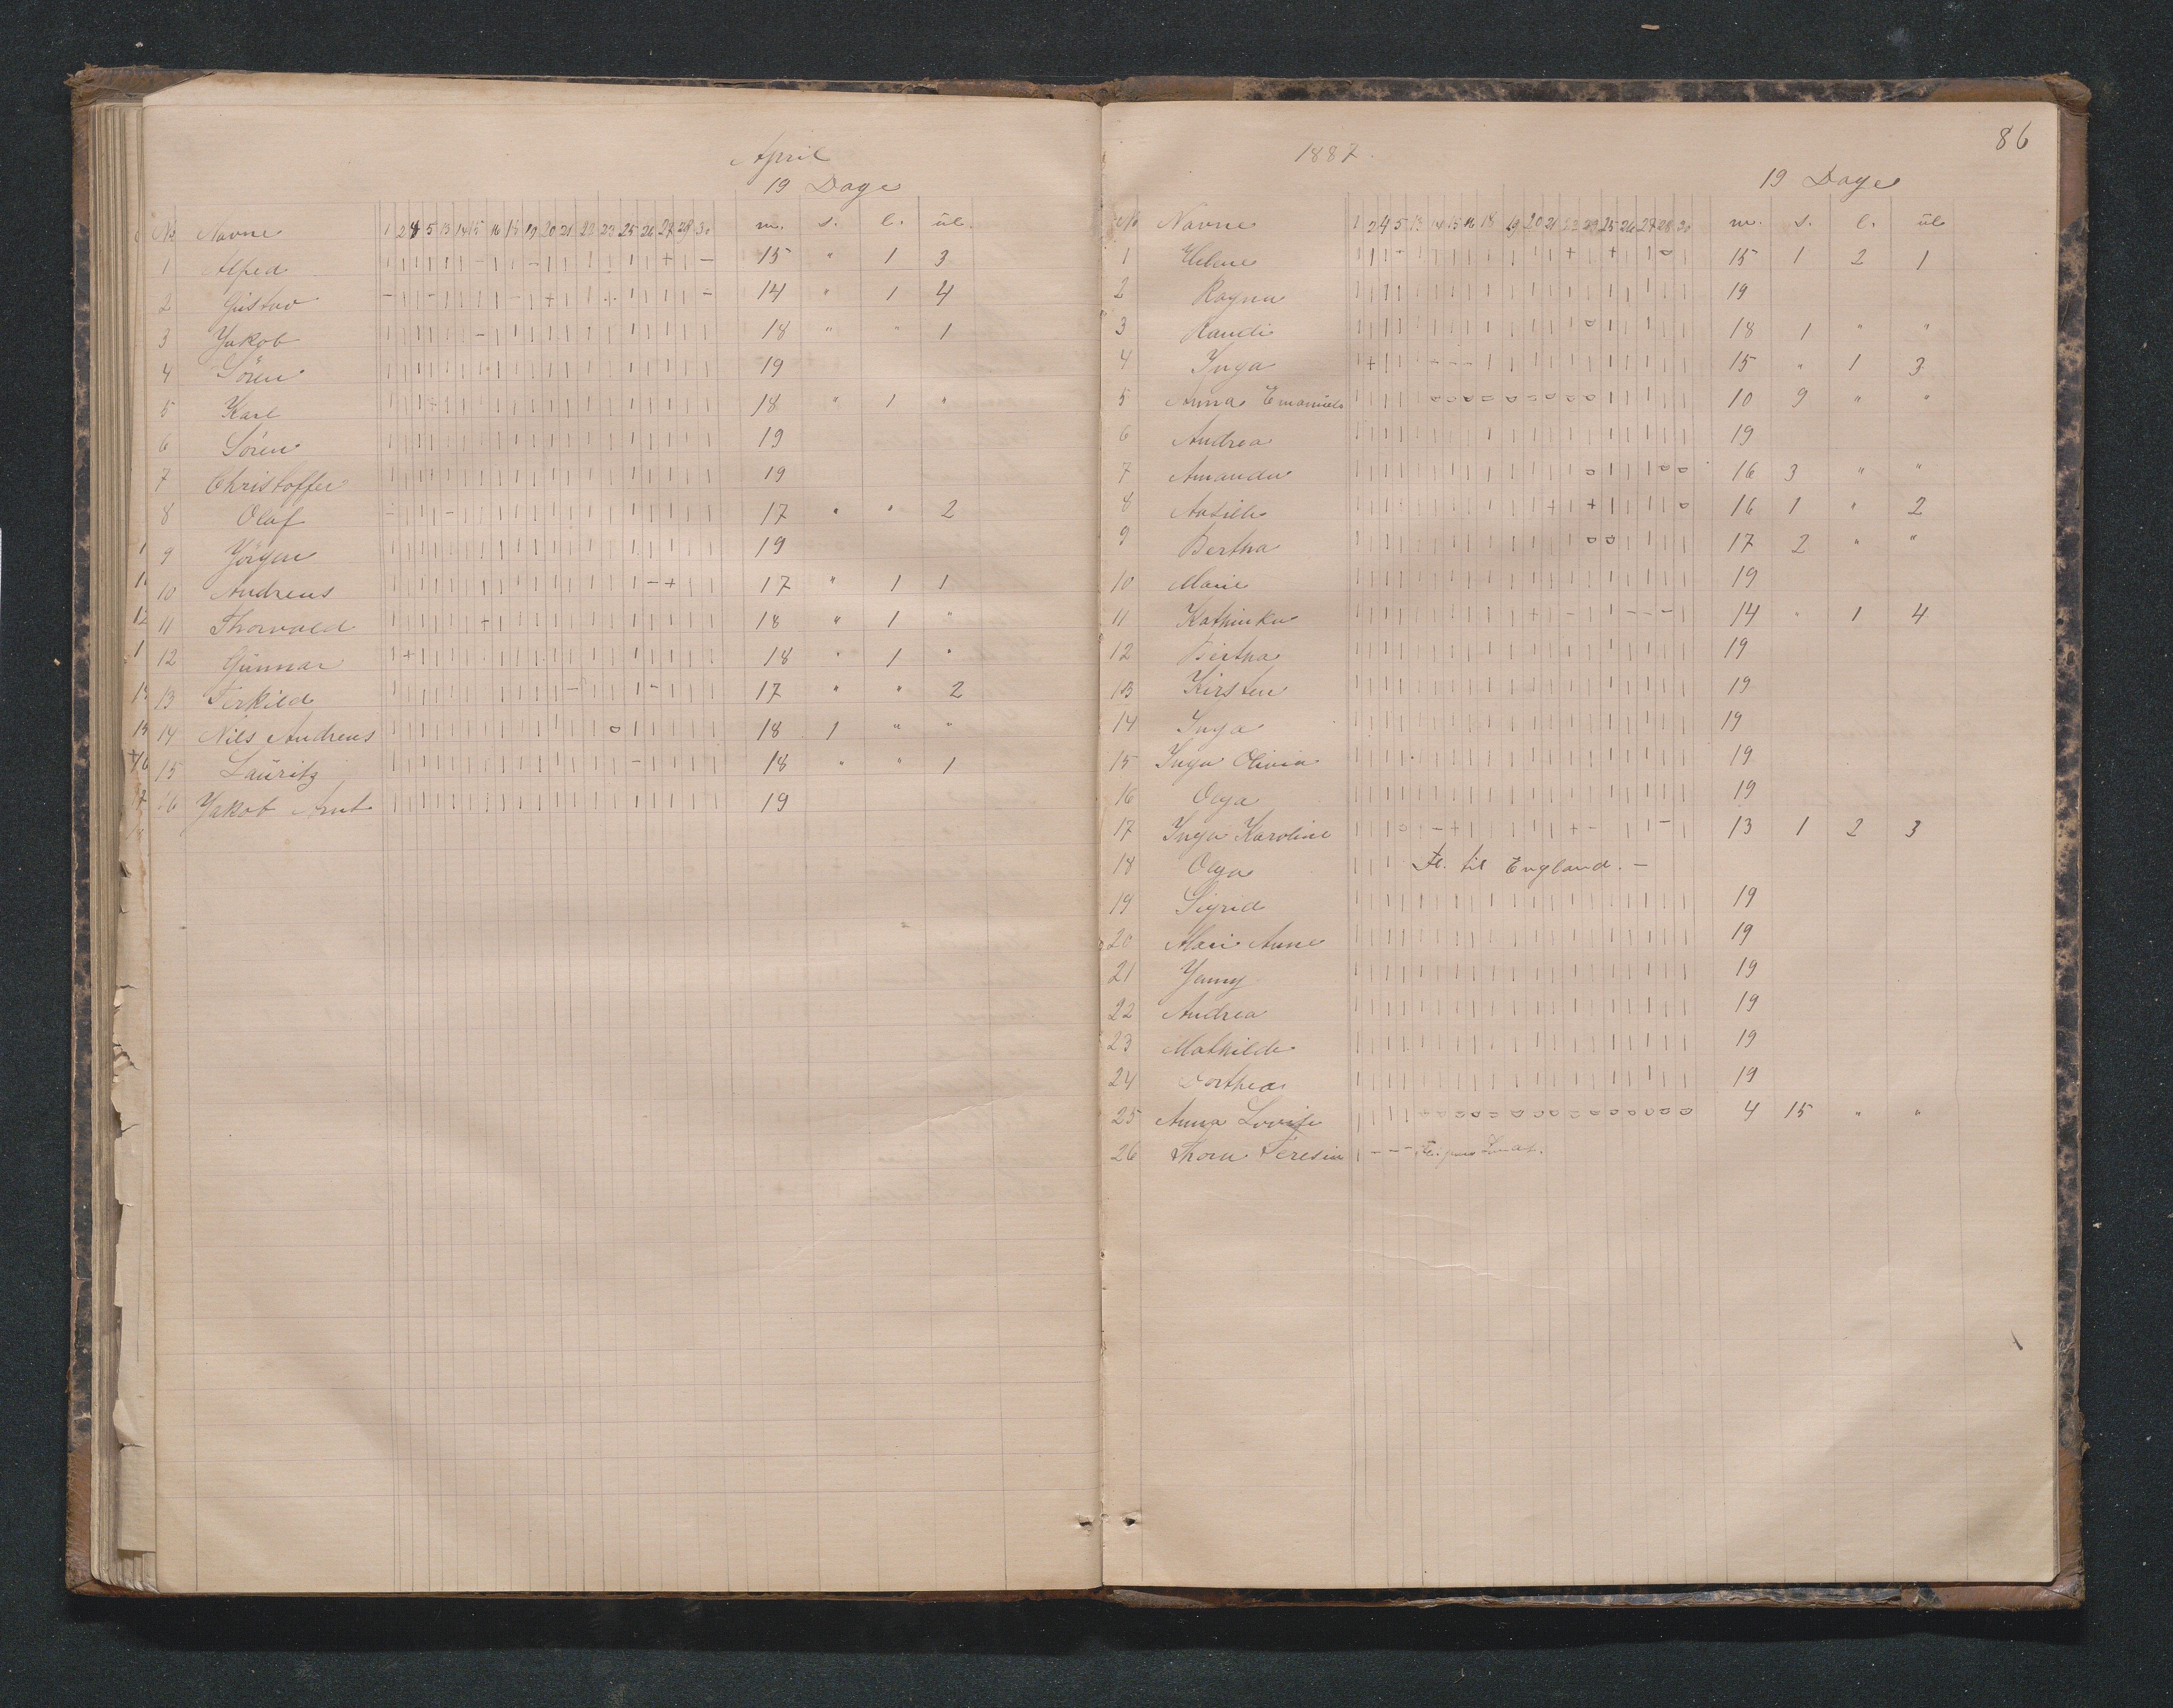 April
19 Dage
No Navne 1 2 4 5 13 14 15 16 18 19 20 21 22 23 25 26 27 28 30 m. s. l. ul.
1 Alfred 15 " 1 3
2 Gustav 14 " 1 4
3 Jakob 18 " " 1
4 Sören 19
5 Karl 18 " 1 "
6 Sören 19
7 Christoffer 19
8 Olaf 17 " " 2
9 Jörgen 19
10 Andreas 17 " 1 1
11 Thorvald 18 " 1 "
12 Gunnar 18 " 1 "
13 Terkild 17 " " 2
14 Nils Andreas 18 1 " "
15 Lauritz 18 " " 1
16 Jakob Arnt 19
86
1887.
19 Dage
No Navne 1 2 4 5 13 14 15 16 18 19 20 21 22 23 25 26 27 28 30 m. s. l. ul
1 Helene 15 1 2 1
2 Ragna 19
3 Randi 18 1 " "
4 Inga 15 " 1 3
5 Anna Emanuele 10 9 " "
6 Andrea 19
7 Amanda 16 3 " "
8 Aasille 16 1 " 2
9 Bertha 17 2 " "
10 Marie 19
11 Kathinka 14 " 1 4
12 Bertha 19
13 Kirsten 19
14 Inga 19
15 Inga Olivia 19
16 Olga 19
17 Inga Karoline 13 1 2 3
18 Olga Fl. til England. -
19 Sigrid 19
20 Mari Anne 19
21 Jenny 19
22 Andrea 19
23 Mathilde 19
24 Dorthea 19
25 Anna Lovise 4 15 " "
26 Thora Teresia